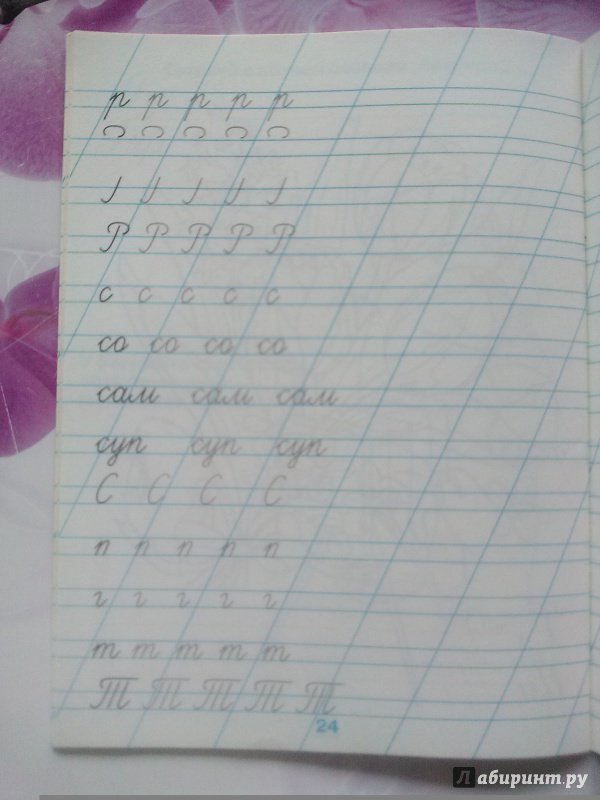 р р р р р
Р Р Р Р Р
с с с с с
со со со со
сам сам сам
суп суп суп
С С С С
п п п п п
г г г г г
т т т т т
Т Т Т Т Т
24
Лабиринт.ру